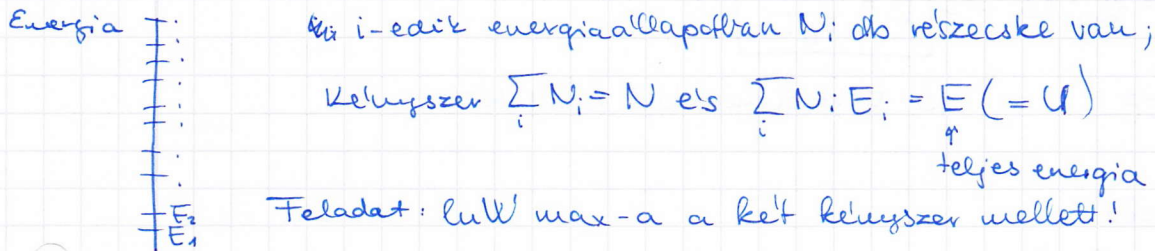 Energia
i-edik energiaállapotban Nᵢ db részecske van;
Kényszer ∑ᵢ Nᵢ = N és ∑ᵢ Nᵢ Eᵢ = E (= U)
↑
teljes energia
Feladat: lnW max-a a két kényszer mellett!
E₂
E₁